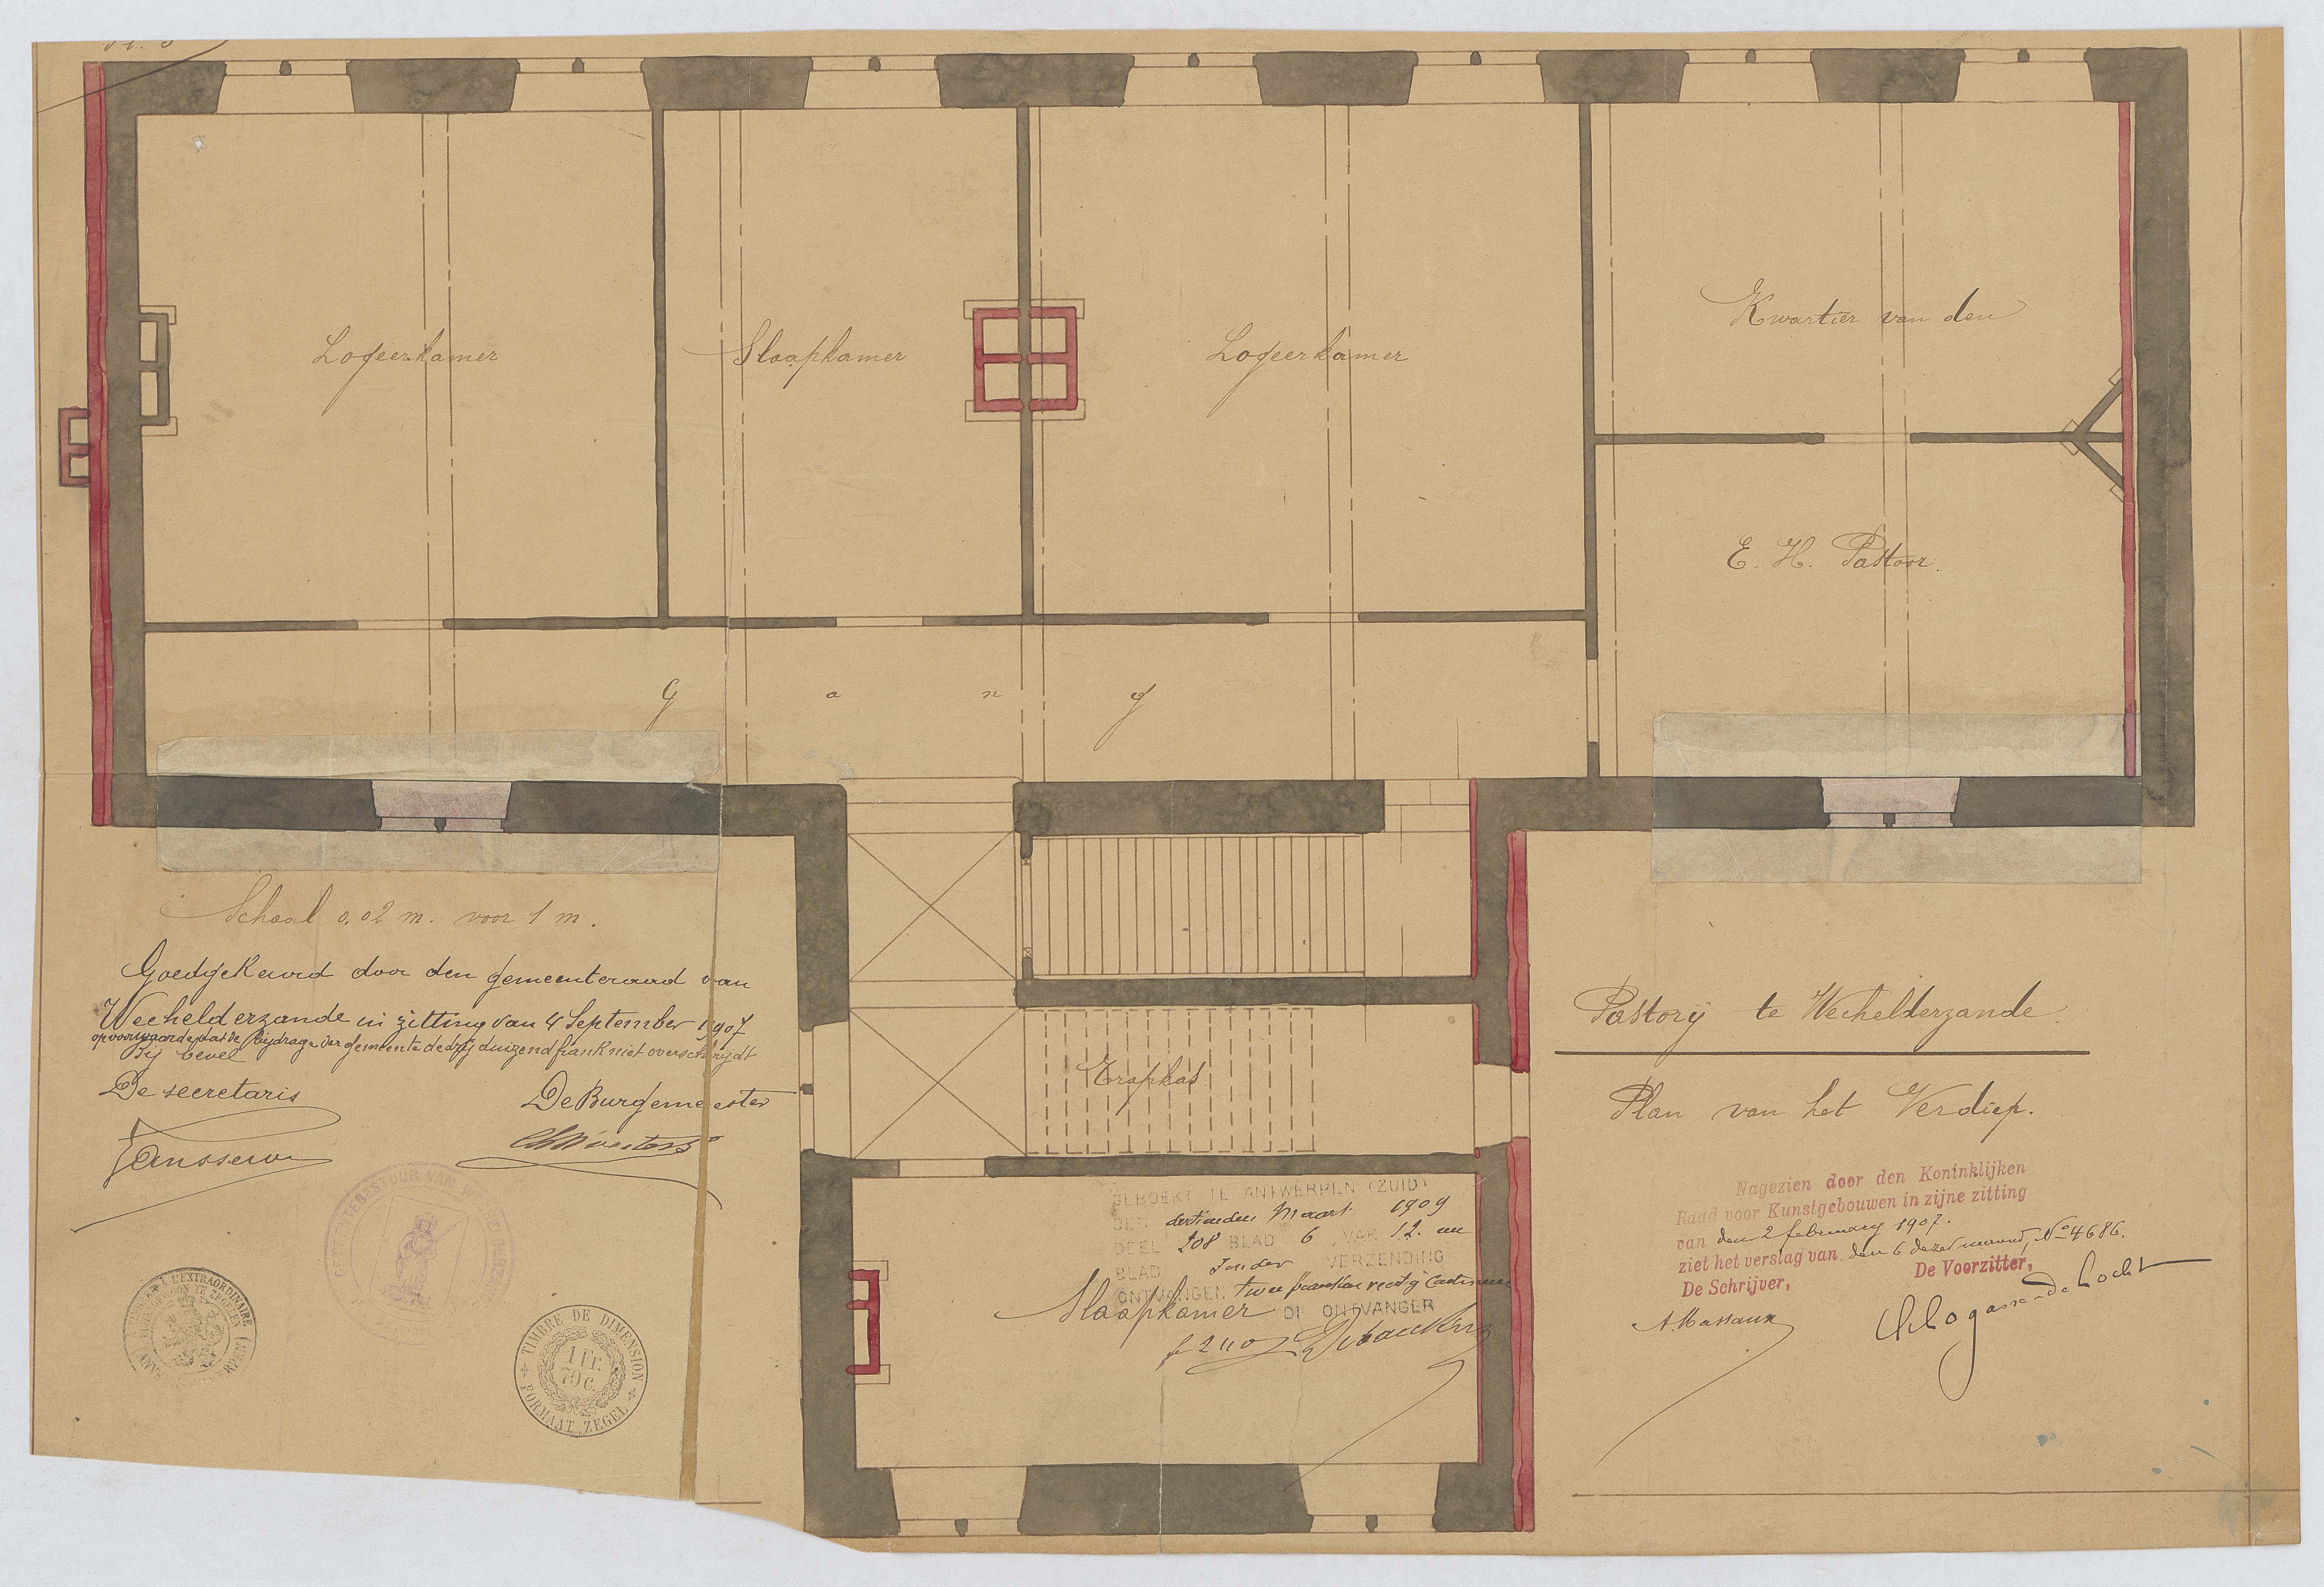 Logeerkamer
Slaapkamer
Logeerkamer
Kwartier van den
E. H. Pastoor.
Gang
Schaal 0.02 m. voor 1 m.
Goedgekeurd door den gemeenteraad van
Wechelderzande in zitting van 4 September 1907
op voorwaarde dat de bijdrage der gemeente de drij duizend frank niet overschrijdt
Bij bevel
De secretaris
De Burgemeester
Janssens
Trapkas
Pastorij te Wechelderzande.
Plan van het Verdiep.
Nagezien door den Koninklijken
Raad voor Kunstgebouwen in zijne zitting
van den 2 february 1907.
ziet het verslag van den 6 dezer maand, No 4686.
De Schrijver,
De Voorzitter,
A. Massaux
GEBOEKT TE ANTWERPEN (ZUID)
DEN dertienden Maart 1909
DEEL 208 BLAD 6 VAK 12. en
BLAD zonder VERZENDING
ONTVANGEN twee franken veertig Centiemen
Slaapkamer
DE ONTVANGER
f 2 40
GEMEENTEBESTUUR VAN WECHELDERZANDE
TIMBRE DE DIMENSION
1 Fr.
70 c.
FORMAAT ZEGEL
TIMBRE A L'EXTRAORDINAIRE